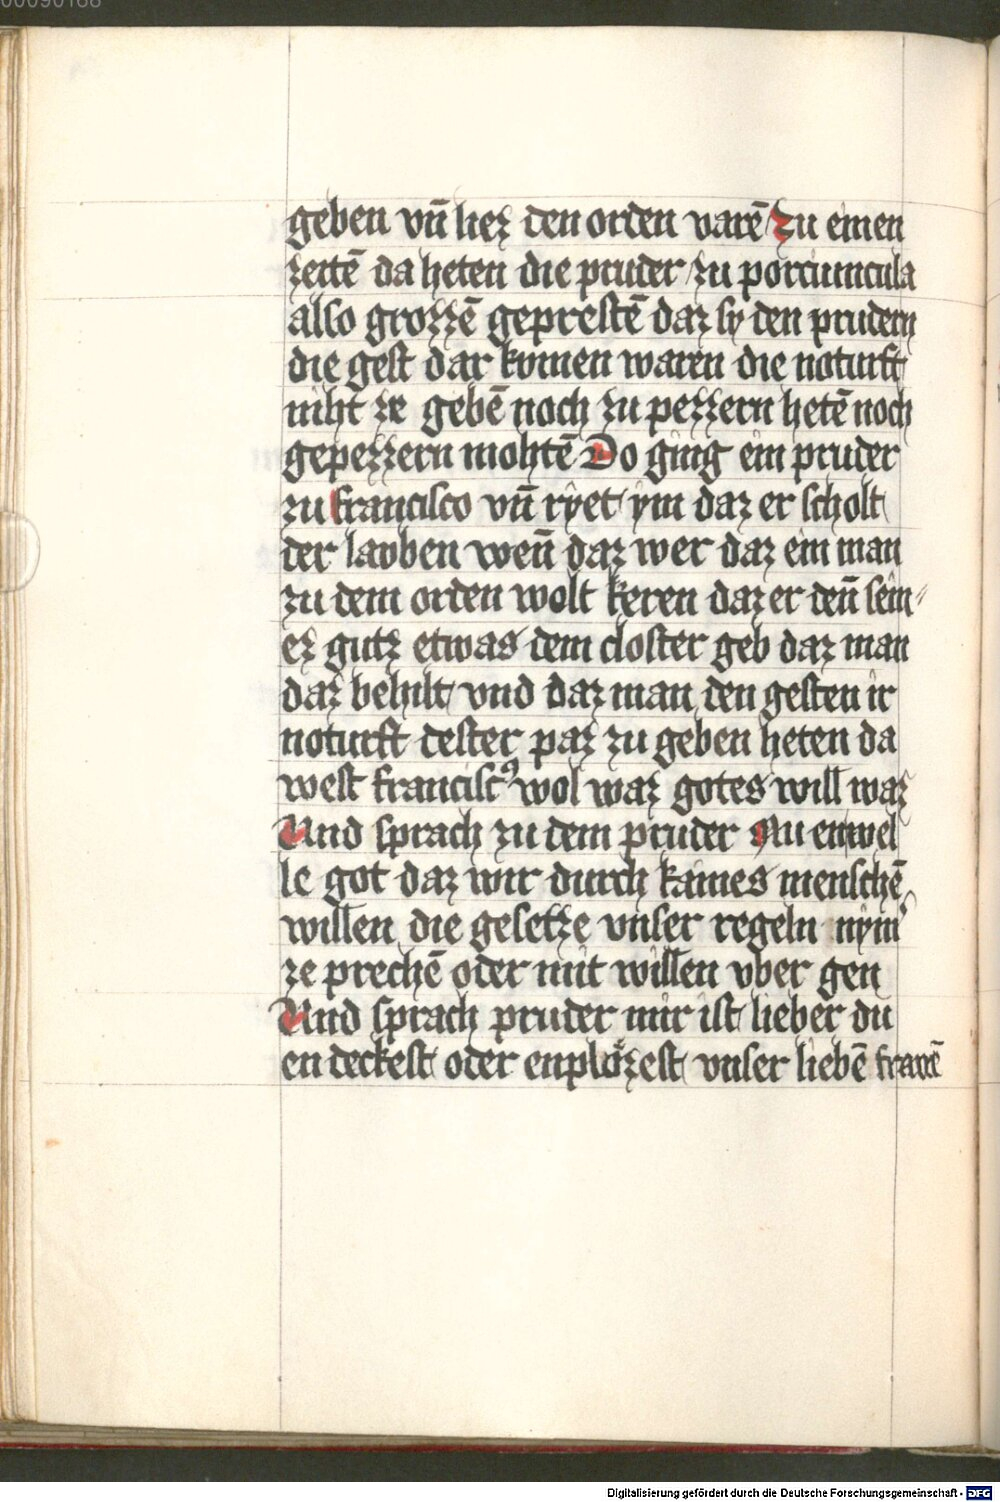 geben vn̄ liez den orden varē Zu einen
zeitē da heten die pruder zu porciuncula
also grozzē geprestē daz sy den prudern
die gest dar komen waren die noturft
niht ze gebē noch zu pezzern hetē noch
gepezzern mohtē Do ging ein pruder
zu francisco vn̄ ryet ym daz er scholt
der lavben wen̄ daz wer daz ein man
zu dem orden wolt keren daz er den̄ sein⸗
ez gutz etwas dem closter geb daz man
daz behilt vnd daz man den gesten ir
noturft dester paz zu geben heten da
west franciscꝰ wol waz gotes will waz
Und sprach zu dem pruder Nu enwel
le got daz wir durch kaines menschē
willen die gesetze vnser regeln nym̾
ze prechē oder mit willen vber gen
Und sprach pruder mir ist lieber du
en deckest oder enplözest vnser liebē fravē
Digitalisierung gefördert durch die Deutsche Forschungsgemeinschaft - DFG